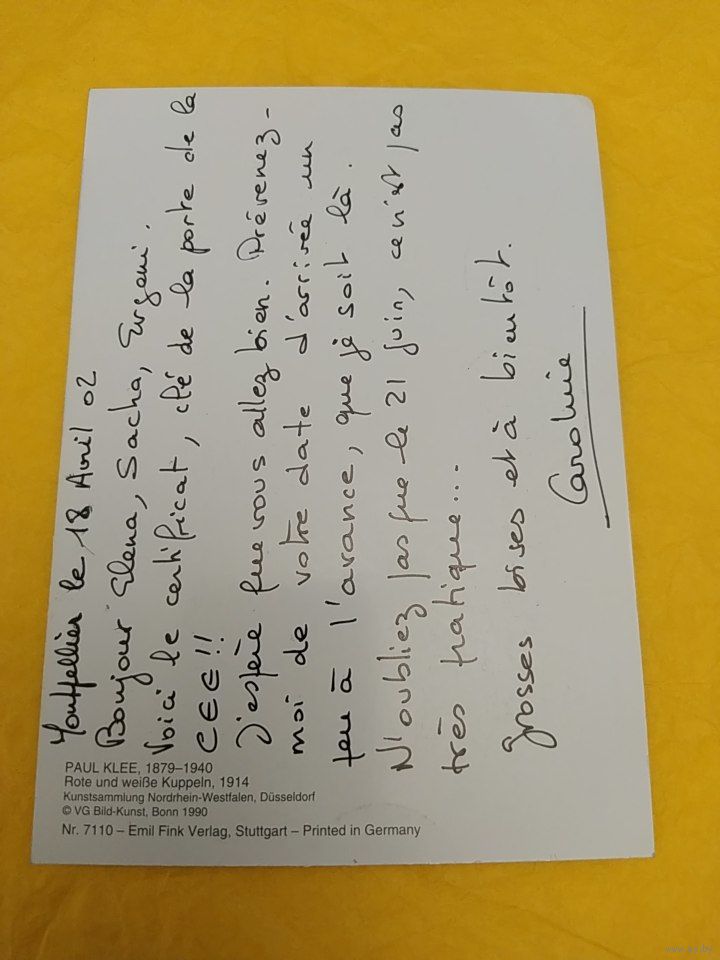 Montpellier le 18 Avril 02
Bonjour Elena, Sacha, Evgeni.
Voici le certificat, clé de la porte de la
CEE !!
J'espère que vous allez bien. Prévenez-
moi de votre date d'arrivée un
peu à l'avance, que je soit là.
N'oubliez pas que le 21 juin, ce n'est pas
très pratique...
grosses bises et à bientôt.
Caroline
PAUL KLEE, 1879–1940
Rote und weiße Kuppeln, 1914
Kunstsammlung Nordrhein-Westfalen, Düsseldorf
© VG Bild-Kunst, Bonn 1990
Nr. 7110 – Emil Fink Verlag, Stuttgart – Printed in Germany